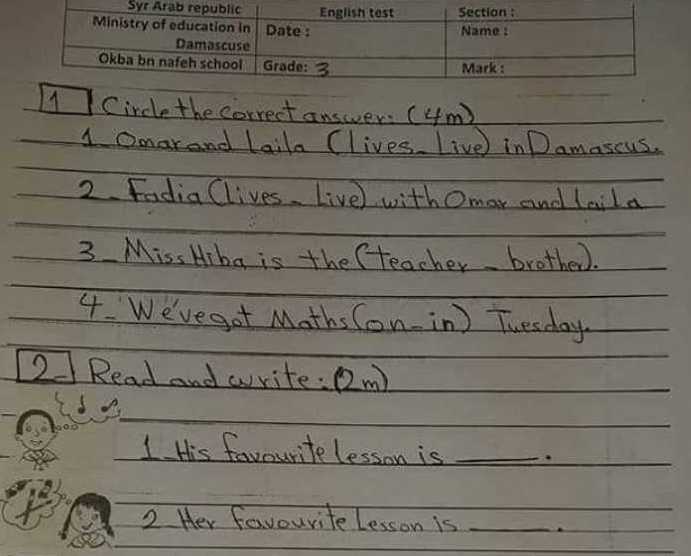 Syr Arab republic English test Section :
Ministry of education in Date : Name :
Damascuse
Okba bn nafeh school Grade: 3 Mark :
1 Circle the correct answer: (4m)
1- Omar and Laila (lives - live) in Damascus.
2- Fadia (lives - live) with Omar and Laila
3- Miss Hiba is the (teacher - brother).
4- We've got Maths (on - in) Tuesday.
2- Read and write: (2m)
1- His favourite lesson is ______.
2- Her favourite lesson is ______.